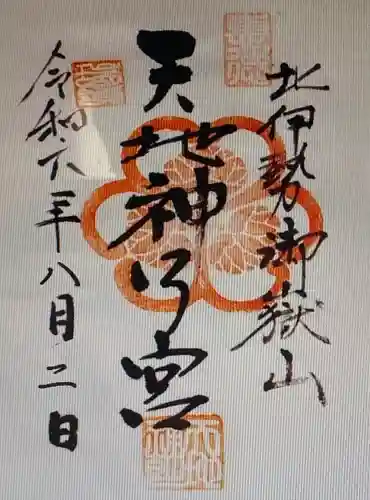 北伊勢御嶽山
天地神乃宮
令和六年八月二日